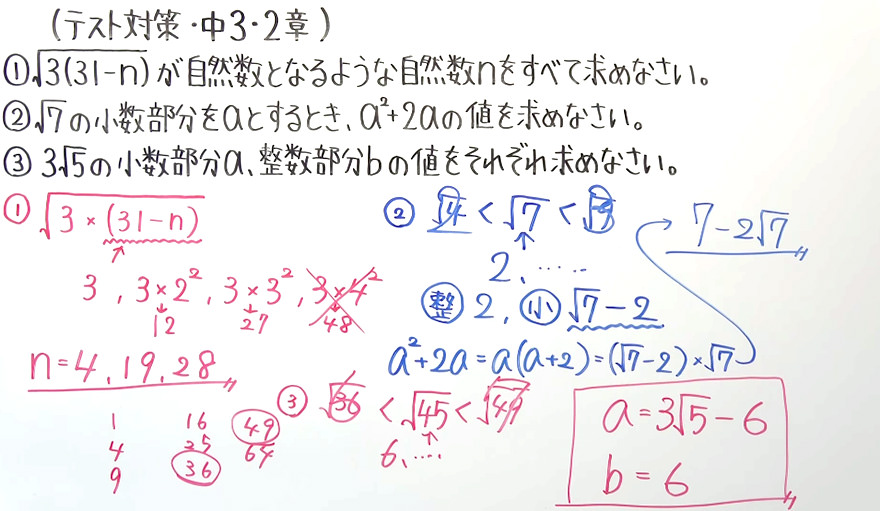 (テスト対策・中3・2章)
①√3(31-n) が自然数となるような自然数nをすべて求めなさい。
②√7の小数部分をaとするとき、a²+2aの値を求めなさい。
③ 3√5の小数部分a、整数部分bの値をそれぞれ求めなさい。
① √3×(31-n)
↑
3, 3×2², 3×3², 3×4²
↓ ↓ ↓
12 27 48
n=4, 19, 28
1 16 49
4 25 64
9 36
② √4 < √7 < √9
↑
2.……
整 2, 小 √7-2
a²+2a=a(a+2)=(√7-2)×√7
7-2√7
③ √36 < √45 < √49
↑
6.……
a=3√5-6
b=6